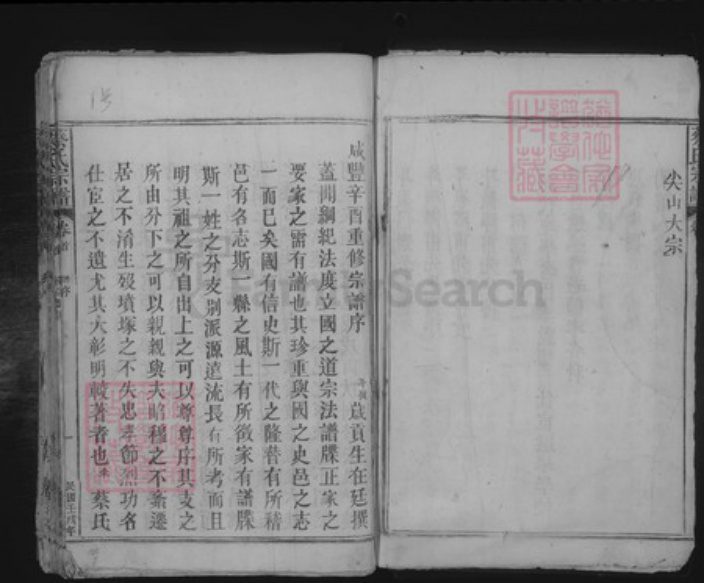 尖山大宗
咸豐辛酉重修宗譜序 歲貢生在廷撰
蓋聞綱紀法度立國之道宗法譜牒正家之
要家之需有譜也其珍重與國之史邑之志
一而已矣國有信史斯一代之隆替有所稽
邑有各志斯一縣之風土有所徵家有譜牒
斯一姓之分支別派源遠流長有所考而且
明其祖之所自出上之可以尊尊序其支之
所由分下之可以親親與夫昭穆之不紊遷
居之不淆生歿墳塚之不失忠孝節烈功名
仕宦之不遺尤其大彰明較著者也 蔡氏
蔡氏宗譜 卷首 序 一 民國壬戌年
FamilySearch